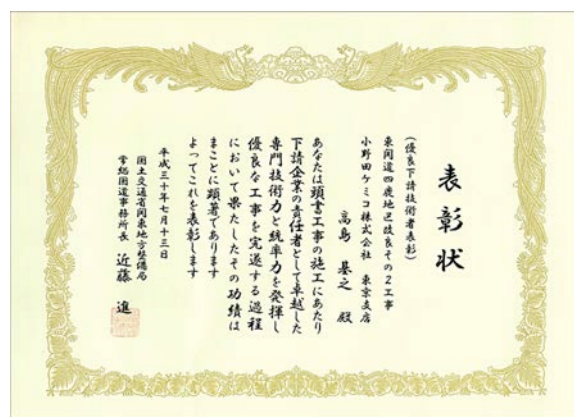 表彰状
(優良下請技術者表彰)
東関道四鹿地区改良その2工事
小野田ケミコ株式会社 東京支店
高島 基之 殿
あなたは頭書工事の施工にあたり
下請企業の責任者として卓越した
専門技術力と統率力を発揮し
優良な工事を完遂する過程
において果たしたその功績は
まことに顕著であります
よってこれを表彰します
平成三十年七月十三日
国土交通省関東地方整備局
常総国道事務所長 近藤 進